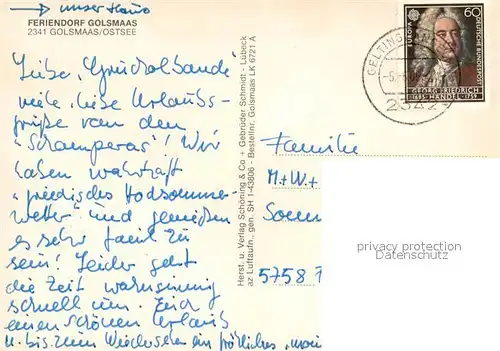 → unser Haus
FERIENDORF GOLSMAAS
2341 GOLSMAAS/OSTSEE
Liebe
viele liebe Urlaubs-
grüße von den
"Schamperas"! Wir
haben wahrhaft
Hochsommer-
wetter" und genießen
es sehr faul zu
sein! Leider geht
die Zeit wahnsinnig
schnell um. Euch
einen schönen Urlaub
u. bis zum Wiedersehen ein fröhliches
Herst. u. Verlag Schöning & Co + Gebrüder Schmidt - Lübeck
az Luftaufn., gen. SH 1-43806 - Bestellnr. Golsmaas LK 6721 A
60
EUROPA
DEUTSCHE BUNDESPOST
GEORG FRIEDRICH
HÄNDEL
GELTING
Familie
M.+W.+
Soem
5758
privacy protection
Datenschutz